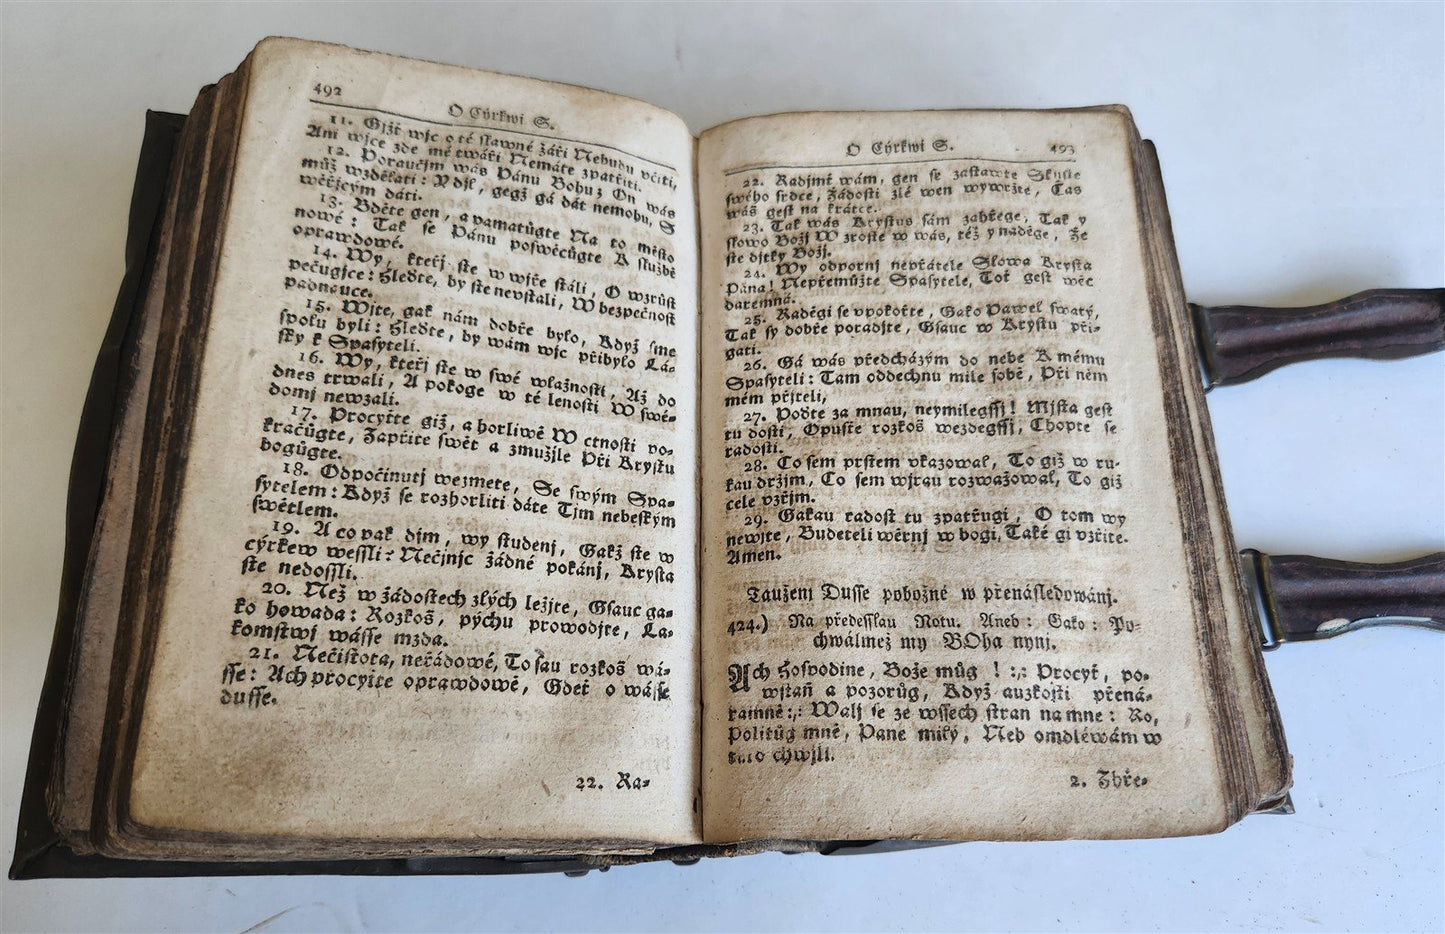 492
O Cýrkwi S.
11. Gjžť wjc o té slawné žáři Nebudu včiti,
Ani wjce zde mé twáři Nemáte zpatřiti.
12. Poraučjm wás Pánu Bohu; On wás
můž wzděkati: gegž gá dát nemohu, S
wěřjcým dáti.
13. Bděte gen, a pamatůgte Na to město
nowé: Tak se Pánu poswěcůgte K službě
oprawdowé.
14. Wy, kteřj ste w wjře stáli, O wzrůst
pečugjce: Hleďte, by ste nevstali, W bezpečnost
padnauce.
15. Wjte, gak nám dobře bylo, Když sme
spolu byli: Hleďte, by wám wjc přibylo Lá-
sky k Spasyteli.
16. Wy, kteřj ste w swé wlažnosti, Až do
dnes trwali, A pokoge w té lenosti W swě-
domj newzali.
17. Procyťte giž, a horliwě W ctnosti po-
kračůgte, Zapřite swět a zmužile Při Krystu
bogůgte.
18. Odpočinutj wezmete, Se swým Spa-
sytelem: Když se rozhorliti dáte Tjm nebeským
swětlem.
19. A co pak djm, wy studenj, Gakž ste w
cýrkew wessli? Nečinjc žádné pokánj, Krysta
ste nedossli.
20. Než w žádostech zlých ležjte, Gsauc ga-
ko howada: Rozkoš, pýchu prowodjte, La-
komstwj wásse mzda.
21. Nečistota, neřádowé, To sau rozkoš wá-
sse: Ach procyťte oprawdowě, Gdeť o wásse
dusse.
22. Ra-
O Cýrkwi S.
493
22. Radjmť wám, gen se zastawte Skuste
swého srdce, Žádosti zlé wen wywržte, Čas
wáš gest na krátce.
23. Tak wás Krystus sám zahřege, Tak y
slowo Božj W zroste w wás, též y naděge, Že
ste djtky Božj.
24. Wy odpornj nepřátele Slowa Krysta
Pána! Nepřemůžte Spasytele, Toť gest wěc
daremná.
25. Raděgi se vpokořte, Gako Pawel swatý,
Tak sy dobře poradjte, Gsauc w Krystu při-
gati.
26. Gá wás předcházým do nebe K mému
Spasyteli: Tam oddechnu mile sobě, Při něm
mém přjteli,
27. Poďte za mnau, neymilegssj! Mjsta gest
tu dosti, Opusťe rozkoš wezdegssj, Chopte se
radosti.
28. Co sem prstem vkazowal, To giž w ru-
kau držjm, Co sem wjrau rozwažowal, To giž
cele vzřjm.
29. Gakau radost tu zpatřugi, O tom wy
newjte, Budeteli wěrnj w bogi, Také gi vzřite.
Amen.
Taužení Dusse pobožné w přenásledowánj.
424.) Na předesslau Notu. Aneb: Gako: Po-
chwálmež my BOha nynj.
Ach Hospodine, Bože můg! :,: Procyť, po-
wstaň a pozorůg, Když auzkosti přená-
ramné:,: Walj se ze wssech stran na mne: Ro,
Politůg mně, Pane milý, Neb omdléwám w
tuto chwjli.
2. Zhře-